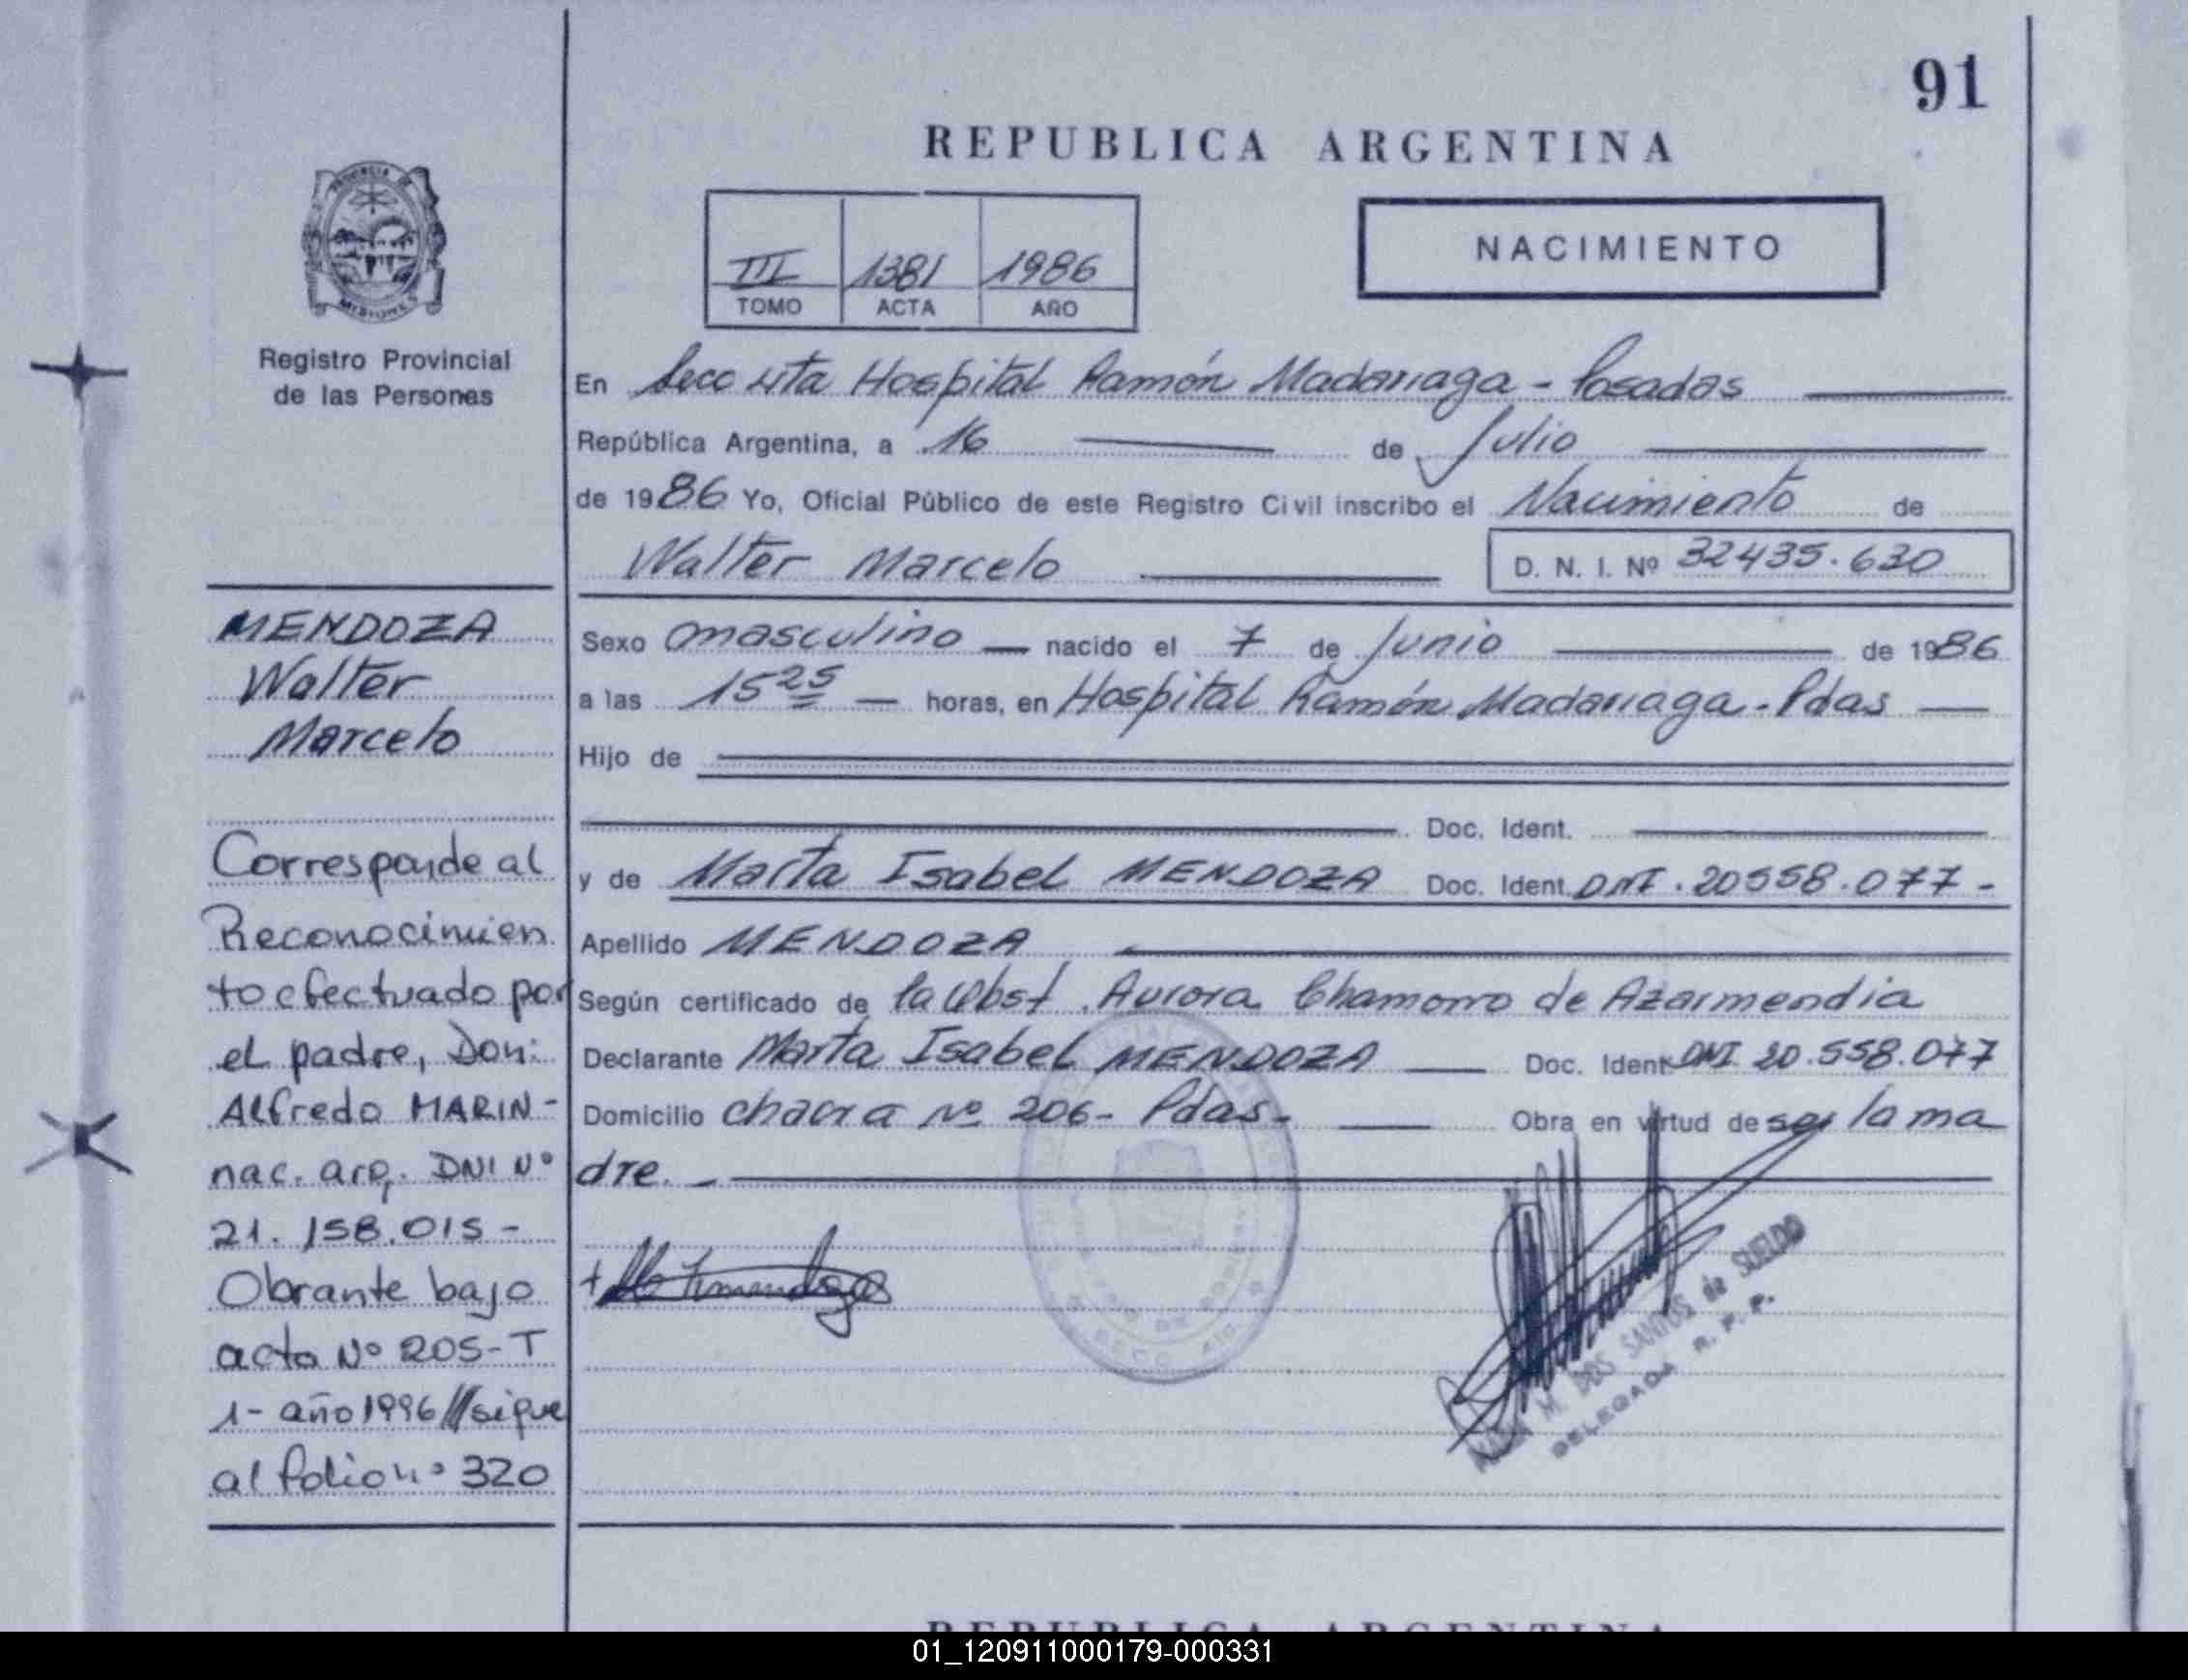 91
REPUBLICA ARGENTINA
PROVINCIA DE
MISIONES
Registro Provincial
de las Personas
III 1381 1986
TOMO ACTA AÑO
NACIMIENTO
En Secc 4ta Hospital Ramón Madariaga - Posadas
República Argentina, a 16 de Julio
de 1986 Yo, Oficial Público de este Registro Civil inscribo el Nacimiento de
Walter Marcelo D. N. I. Nº 32435.630
MENDOZA
Walter
Marcelo
Sexo masculino nacido el 7 de Junio de 1986
a las 15 25 horas, en Hospital Ramón Madariaga - Pdas
Hijo de
Doc. Ident.
y de Marta Isabel MENDOZA Doc. Ident. DNI. 20558.077-
Apellido MENDOZA
Según certificado de la Obst. Aurora Chamorro de Azarmendia
Declarante Marta Isabel MENDOZA Doc. Ident. DNI 20.558.077
Domicilio chacra Nº 206- Pdas- Obra en virtud de ser la ma
dre.-
Corresponde al
Reconocimien
to efectuado por
el padre, Don:
Alfredo MARIN-
nac. arg. DNI Nº
21.158.015-
Obrante bajo
acta Nº 205-T
1- año 1996 // sigue
al folio nº 320
M. DOS SANTOS de SUELDO
DELEGADA R. P. P.
REPUBLICA ARGENTINA
01_120911000179-000331